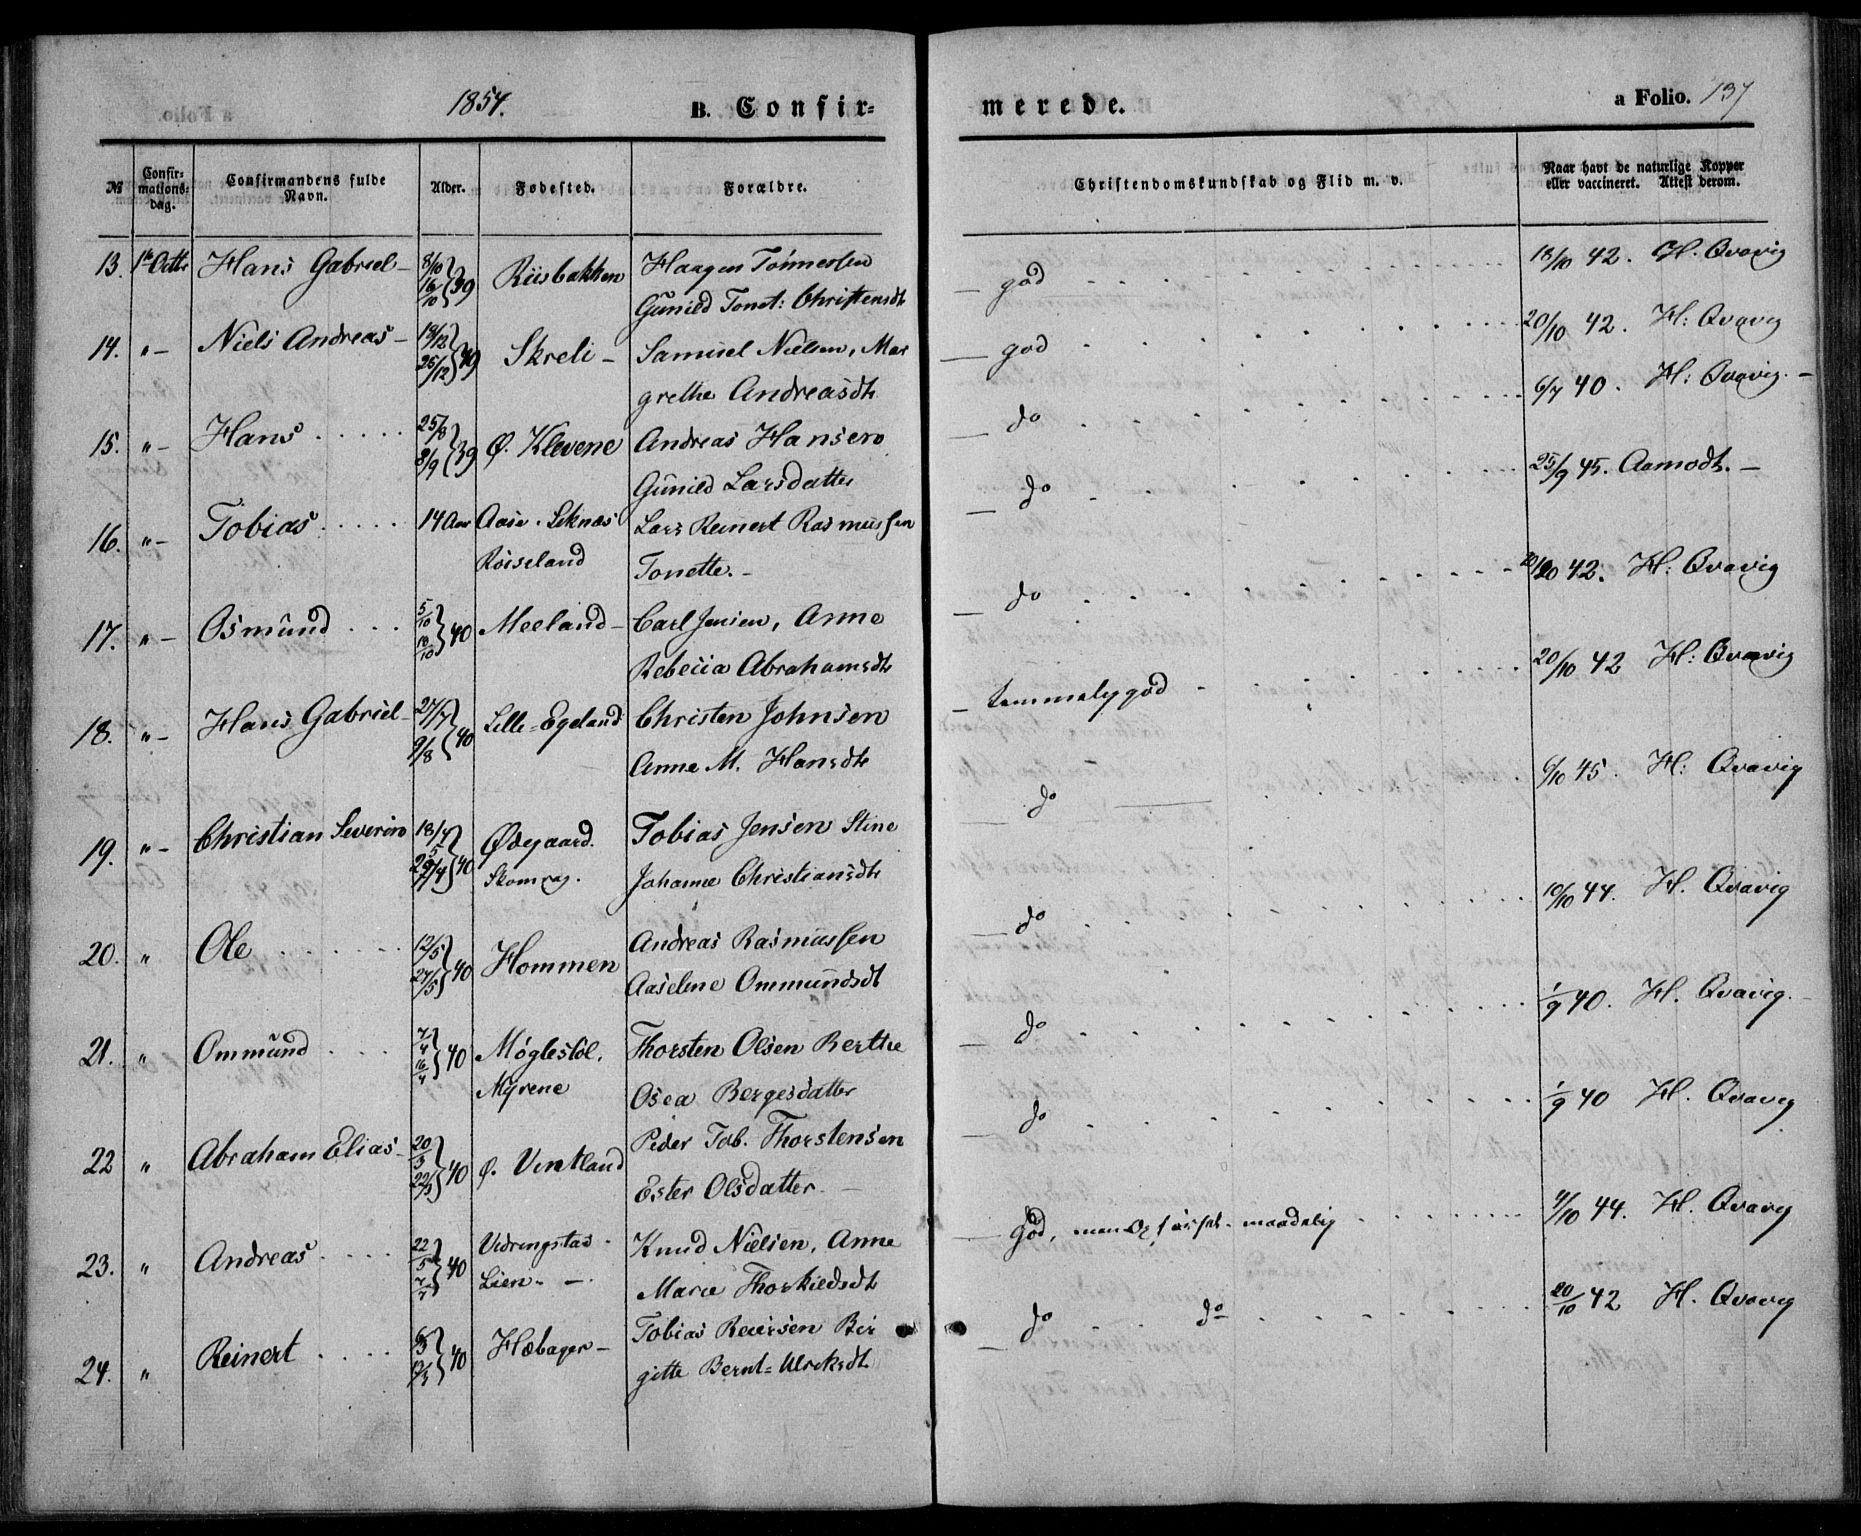 1854.
B. Confir=
merede.
a Folio. 137
№
Confir=
mations=
dag.
Confirmandens fulde
Navn.
Alder.
Fødested.
Forældre.
Christendomskundskab og Flid m. v.
Naar havt de naturlige Kopper
eller vaccineret. Attest derom.
13. 1te Octbr Hans Gabriel - 8/10 16/10 } 39 Riisbakken Haagen Tønnessen
Gunild Tonet: Christensdt
- god 18/10 42. H. Qvavig
14. " - Niels Andreas - 18/12 26/12 } 39 Skreli - Samuel Nielsen, Mar
grethe Andreasdt.
- god 20/10 42. H: Qvavig
15. " - Hans 25/8 8/9 } 39 Ø. Klevene Andreas Hansen
Gunild Larsdatter
- do 6/7 40. H: Qvavig. -
16. " - Tobias 14 Aar Aase. Leknæs Lars Reinert Rasmussen
Røiseland Tonette. -
- do 25/9 45. Aamodt. -
17. " - Osmund 5/10 18/10 } 40 Meeland - Carl Jensen, Anne
Rebecca Abrahamsdt
- do 42. H: Qvavig
18. " - Hans Gabriel - 27/7 9/8 } 40 Lille-Egeland Christen Johnsen
Anne M. Hansdt
- temmelig god 20/10 42 H: Qvavig
19. " - Christian Severin 18/4 } 40 Ødegaard. Tobias Jensen Stine
Skomrag. Johanne Christiansdt
- do 6/10 45. H: Qvavig
20. " Ole 12/5 27/5 } 40 Hommen Andreas Rasmussen
Aaselene Ommundsdt
- do 10/10 44. H. Qvavig
21. " Ommund 7/4 16/4 } 40 Møglestøl, Thorsten Olsen Berthe
Myrene Osea Bergesdatter
- do 1/9 40. H. Qvavig.
22 " Abraham Elias - 20/3 22/3 } 40 Ø. Vintland Peder Tob. Thorstensen
Ester Olsdatter -
- do 1/9 40 H. Qvavig
23. " Andreas 22/5 } 40 Vidringstad - Knud Nielsen, Anne
Lien - - Marie Thorkildsdt
- god, men Opførsel maadelig 4/10 44. H. Qvavig
24. " Reinert } 40 Hæbager - Tobias Reiersen Bir
gitte Bernt-Ulriksdt
- do do 20/10 42 H. Qvavig